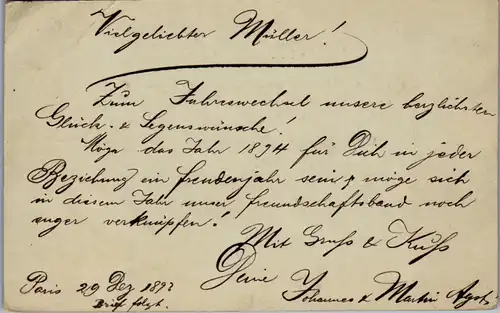 Vielgeliebter Müller!
Zum Jahreswechsel unsere herzlichsten
Glück- & Segenswünsche!
Möge das Jahr 1894 für Dich in jeder
Beziehung ein Freudenjahr sein & möge sich
in diesem Jahr unser Freundschaftsband noch
enger verknüpfen!
Mit Gruss & Kuss
Deine Johannes & Martin
Paris 29 Dez 1893
Brief folgt.